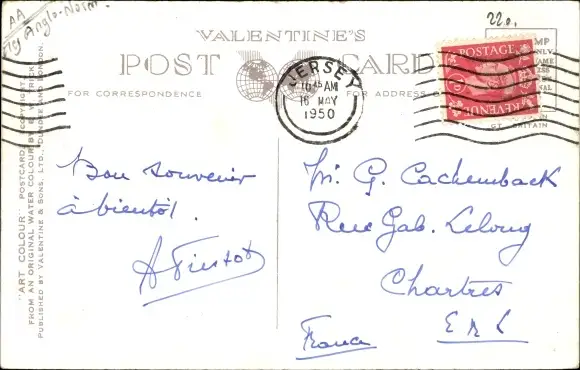 AA
Anglo-Norm.
22.
VALENTINE'S
POST CARD
FOR CORRESPONDENCE
FOR ADDRESS
JERSEY
10 45 AM
16 MAY
1950
POSTAGE
REVENUE
GT. BRITAIN
"ART COLOUR" POSTCARD.
FROM AN ORIGINAL WATER COLOUR BY
PUBLISHED BY VALENTINE & SONS, LTD., DUNDEE AND LONDON.
Bon souvenir
à bientôt.
Mr. G. Cackemback
Rue Gab. Lelong
Chartres
E & L
France